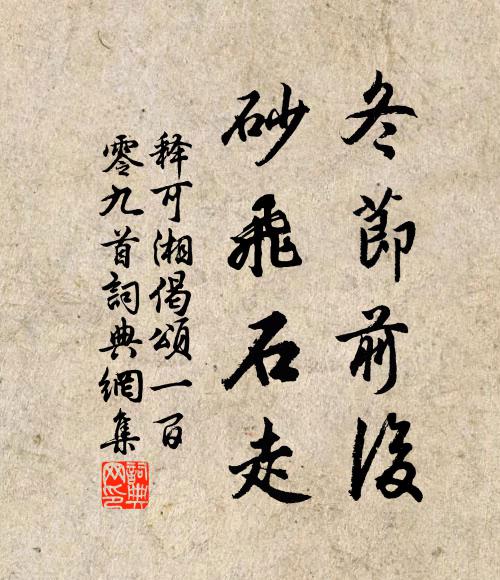 冬節前後
砂飛石走
释可湘偈頌一百
零九首詞典網集
詞典
网印